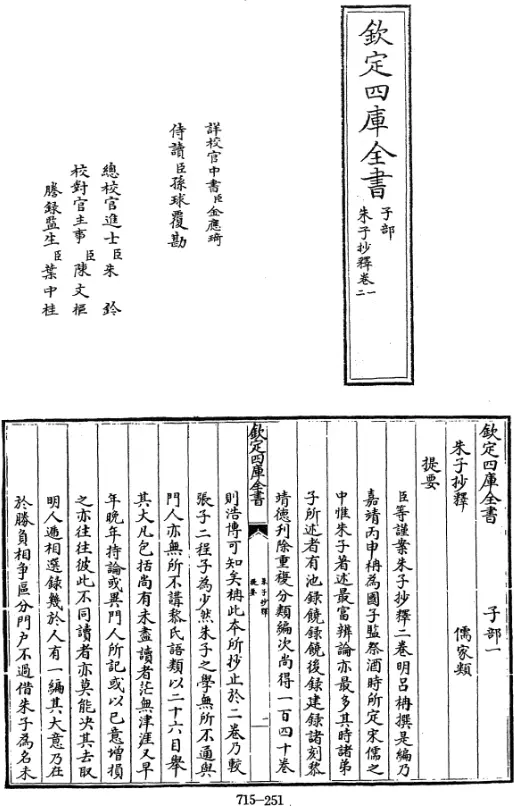 欽定四庫全書
子部
朱子抄釋卷一二
詳校官中書臣金應琦
侍讀臣孫球覆勘
總校官進士臣朱鈐
校對官主事臣陳文樞
謄錄監生臣葉中桂
欽定四庫全書 子部一
朱子抄釋 儒家類
提要
臣等謹案朱子抄釋二卷明呂柟撰是編乃
嘉靖丙申柟為國子監祭酒時所定宋儒之
中惟朱子著述最富辨論亦最多其時諸弟
子所述者有池錄饒錄饒後錄建錄諸刻黎
靖徳刋除重複分類編次尚得一百四十卷
欽定四庫全書
朱子抄釋
提要
一
則浩博可知矣柟此本所抄止於二卷乃較
張子二程子為少然朱子之學無所不通與
門人亦無所不講黎氏語類以二十六目舉
其大凡包括尚有未盡讀者茫無津涯又早
年晩年持論或異門人所記或以己意増損
之亦往往彼此不同讀者亦莫能决其去取
明人遞相選錄幾於人有一編其大意乃在
於勝負相爭區分門户不過借朱子為名未
715-251